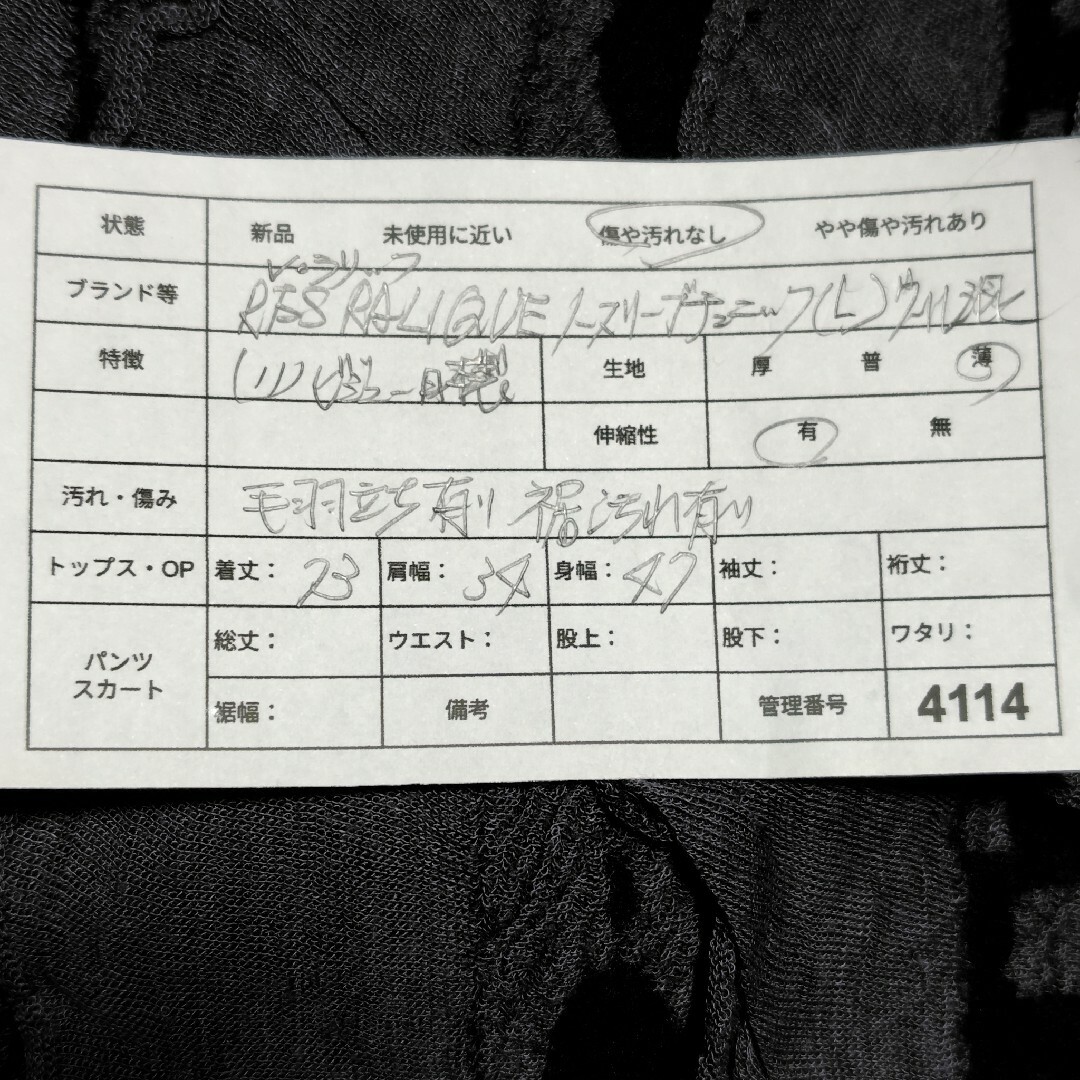 状態 新品 未使用に近い 傷や汚れなし やや傷や汚れあり
ブランド等 RES RALIQUE ノースリーブチュニック(L)ウール混
特徴 生地 厚 普 薄
伸縮性 有 無
汚れ・傷み 毛羽立ち有り 裾汚れ有り
トップス・OP 着丈: 73 肩幅: 34 身幅: 47 袖丈: 裄丈:
パンツ スカート 総丈: ウエスト: 股上: 股下: ワタリ:
裾幅: 備考 管理番号 4114